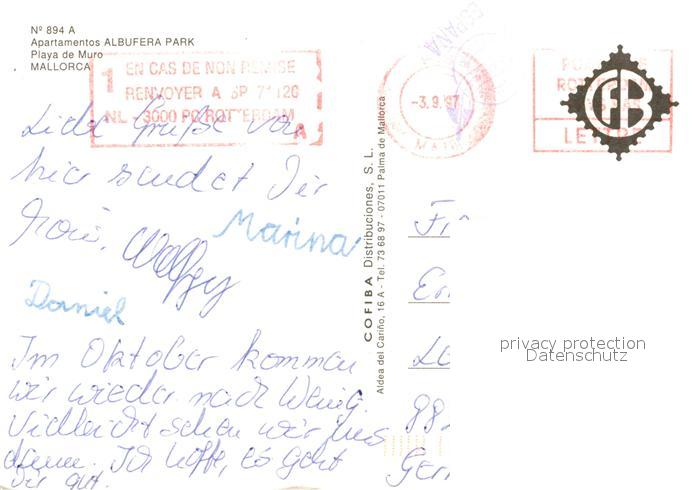 Nº 894 A
Apartamentos ALBUFERA PARK
Playa de Muro
MALLORCA
1 EN CAS DE NON REMISE
RENVOYER A BP 71120
NL - 3000 PC ROTTERDAM
A
ESPAÑA
-3.9.97
LETTRE
CFB
Liebe Grüße von
hier sendet Dir
Marina
Daniel
Im Oktober kommen
wir wieder nach
Vielleicht sehen wir uns
dann. Ich hoffe, es geht
Dir gut.
COFIBA Distribuciones, S. L.
Aldea del Cariño, 16 A - Tel. 73 68 97 - 07011 Palma de Mallorca
88
Ger
privacy protection
Datenschutz